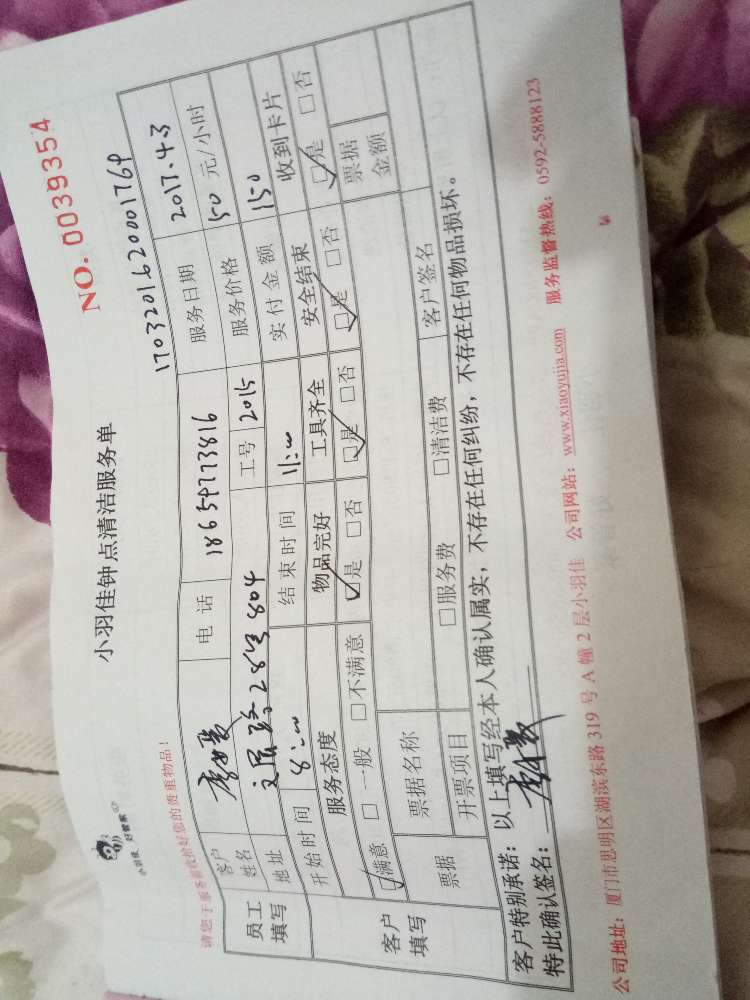 小羽佳 好管家
小羽佳钟点清洁服务单
NO. 0039354
请您于服务前收拾好您的贵重物品！
1703201620001769
员工填写 客户姓名 电话 18659773816 服务日期 2017.4.3
地址 文屏路28号804 工号 2015 服务价格 50 元/小时
开始时间 8:00 结束时间 11:00 实付金额 150
客户填写 服务态度 物品完好 工具齐全 安全结束 收到卡片
☑满意 □一般 □不满意 ☑是 □否 ☑是 □否 ☑是 □否 ☑是 □否
票据 票据名称 票据金额
开票项目 □服务费 □清洁费 客户签名
客户特别承诺：以上填写经本人确认属实，不存在任何纠纷，不存在任何物品损坏。
特此确认签名：
公司地址：厦门市思明区湖滨东路 319 号 A 幢 2 层小羽佳 公司网站：www.xiaoyujia.com 服务监督热线：0592-5888123